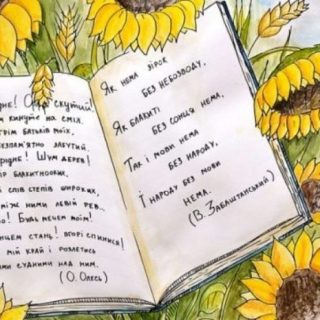 скутий!
кинуте на сміх.
грім батьків моїх,
забутий.
Шум дерев!
блакитнооких,
спів степів широких,
між ними левій рев..
Будь мечем моїм!
стань! вгорі спинися!
мій край і розлетись
судними над ним.
(О. Олесь)
Як нема зірок
без небозводу,
Як блакиті
без сонця нема,
Так і мови нема
без народу,
І народу без мови
нема.
(В. Забаштанський)